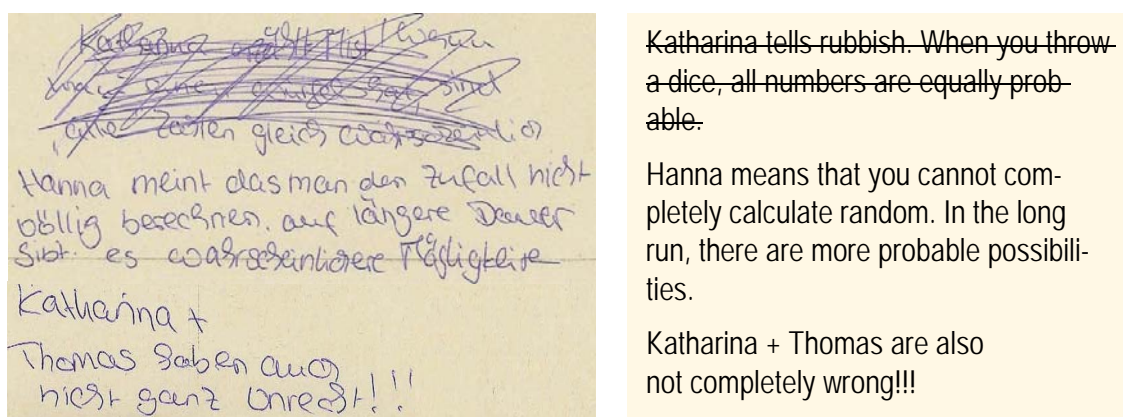 Katharina erzählt Mist. Wenn
man einen Würfel hat, sind
alle Zahlen gleich
Hanna meint das man den Zufall nicht
völlig berechnen. auf längere Dauer
Gibt es
Katharina +
Thomas haben auch
nicht ganz Unrecht!!!
Katharina tells rubbish. When you throw
a dice, all numbers are equally prob-
able.
Hanna means that you cannot com-
pletely calculate random. In the long
run, there are more probable possibili-
ties.
Katharina + Thomas are also
not completely wrong!!!